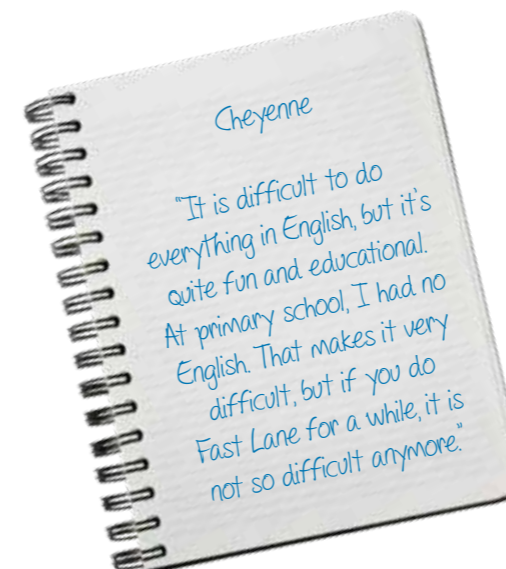 Cheyenne
"It is difficult to do
everything in English, but it's
quite fun and educational.
At primary school, I had no
English. That makes it very
difficult, but if you do
Fast Lane for a while, it is
not so difficult anymore."